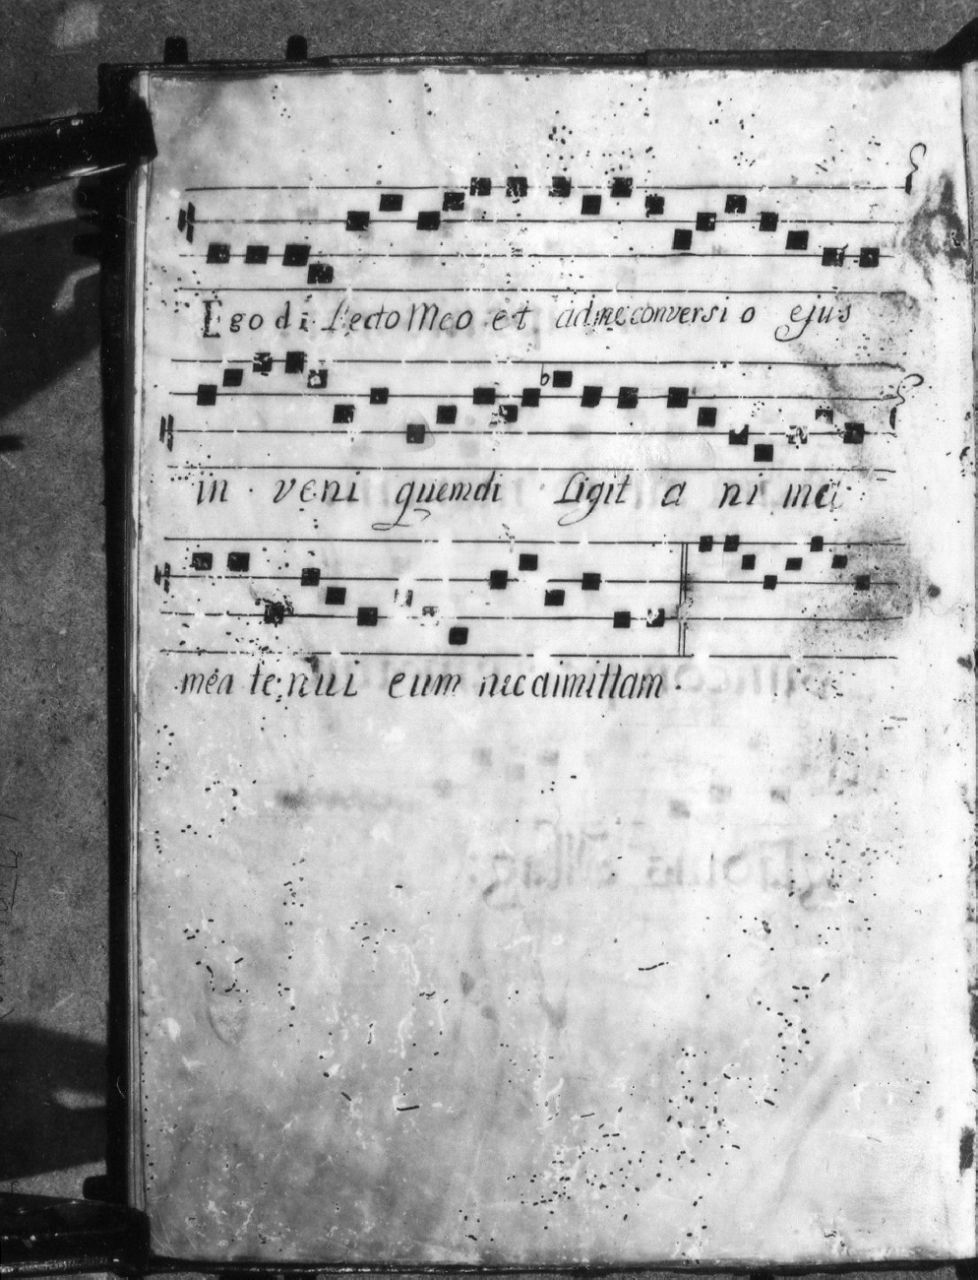 Ego di Lecto Meo et ad me conversi o ejus
in veni quem di Ligit a ni ma
mea te nui eum nec dimittam.